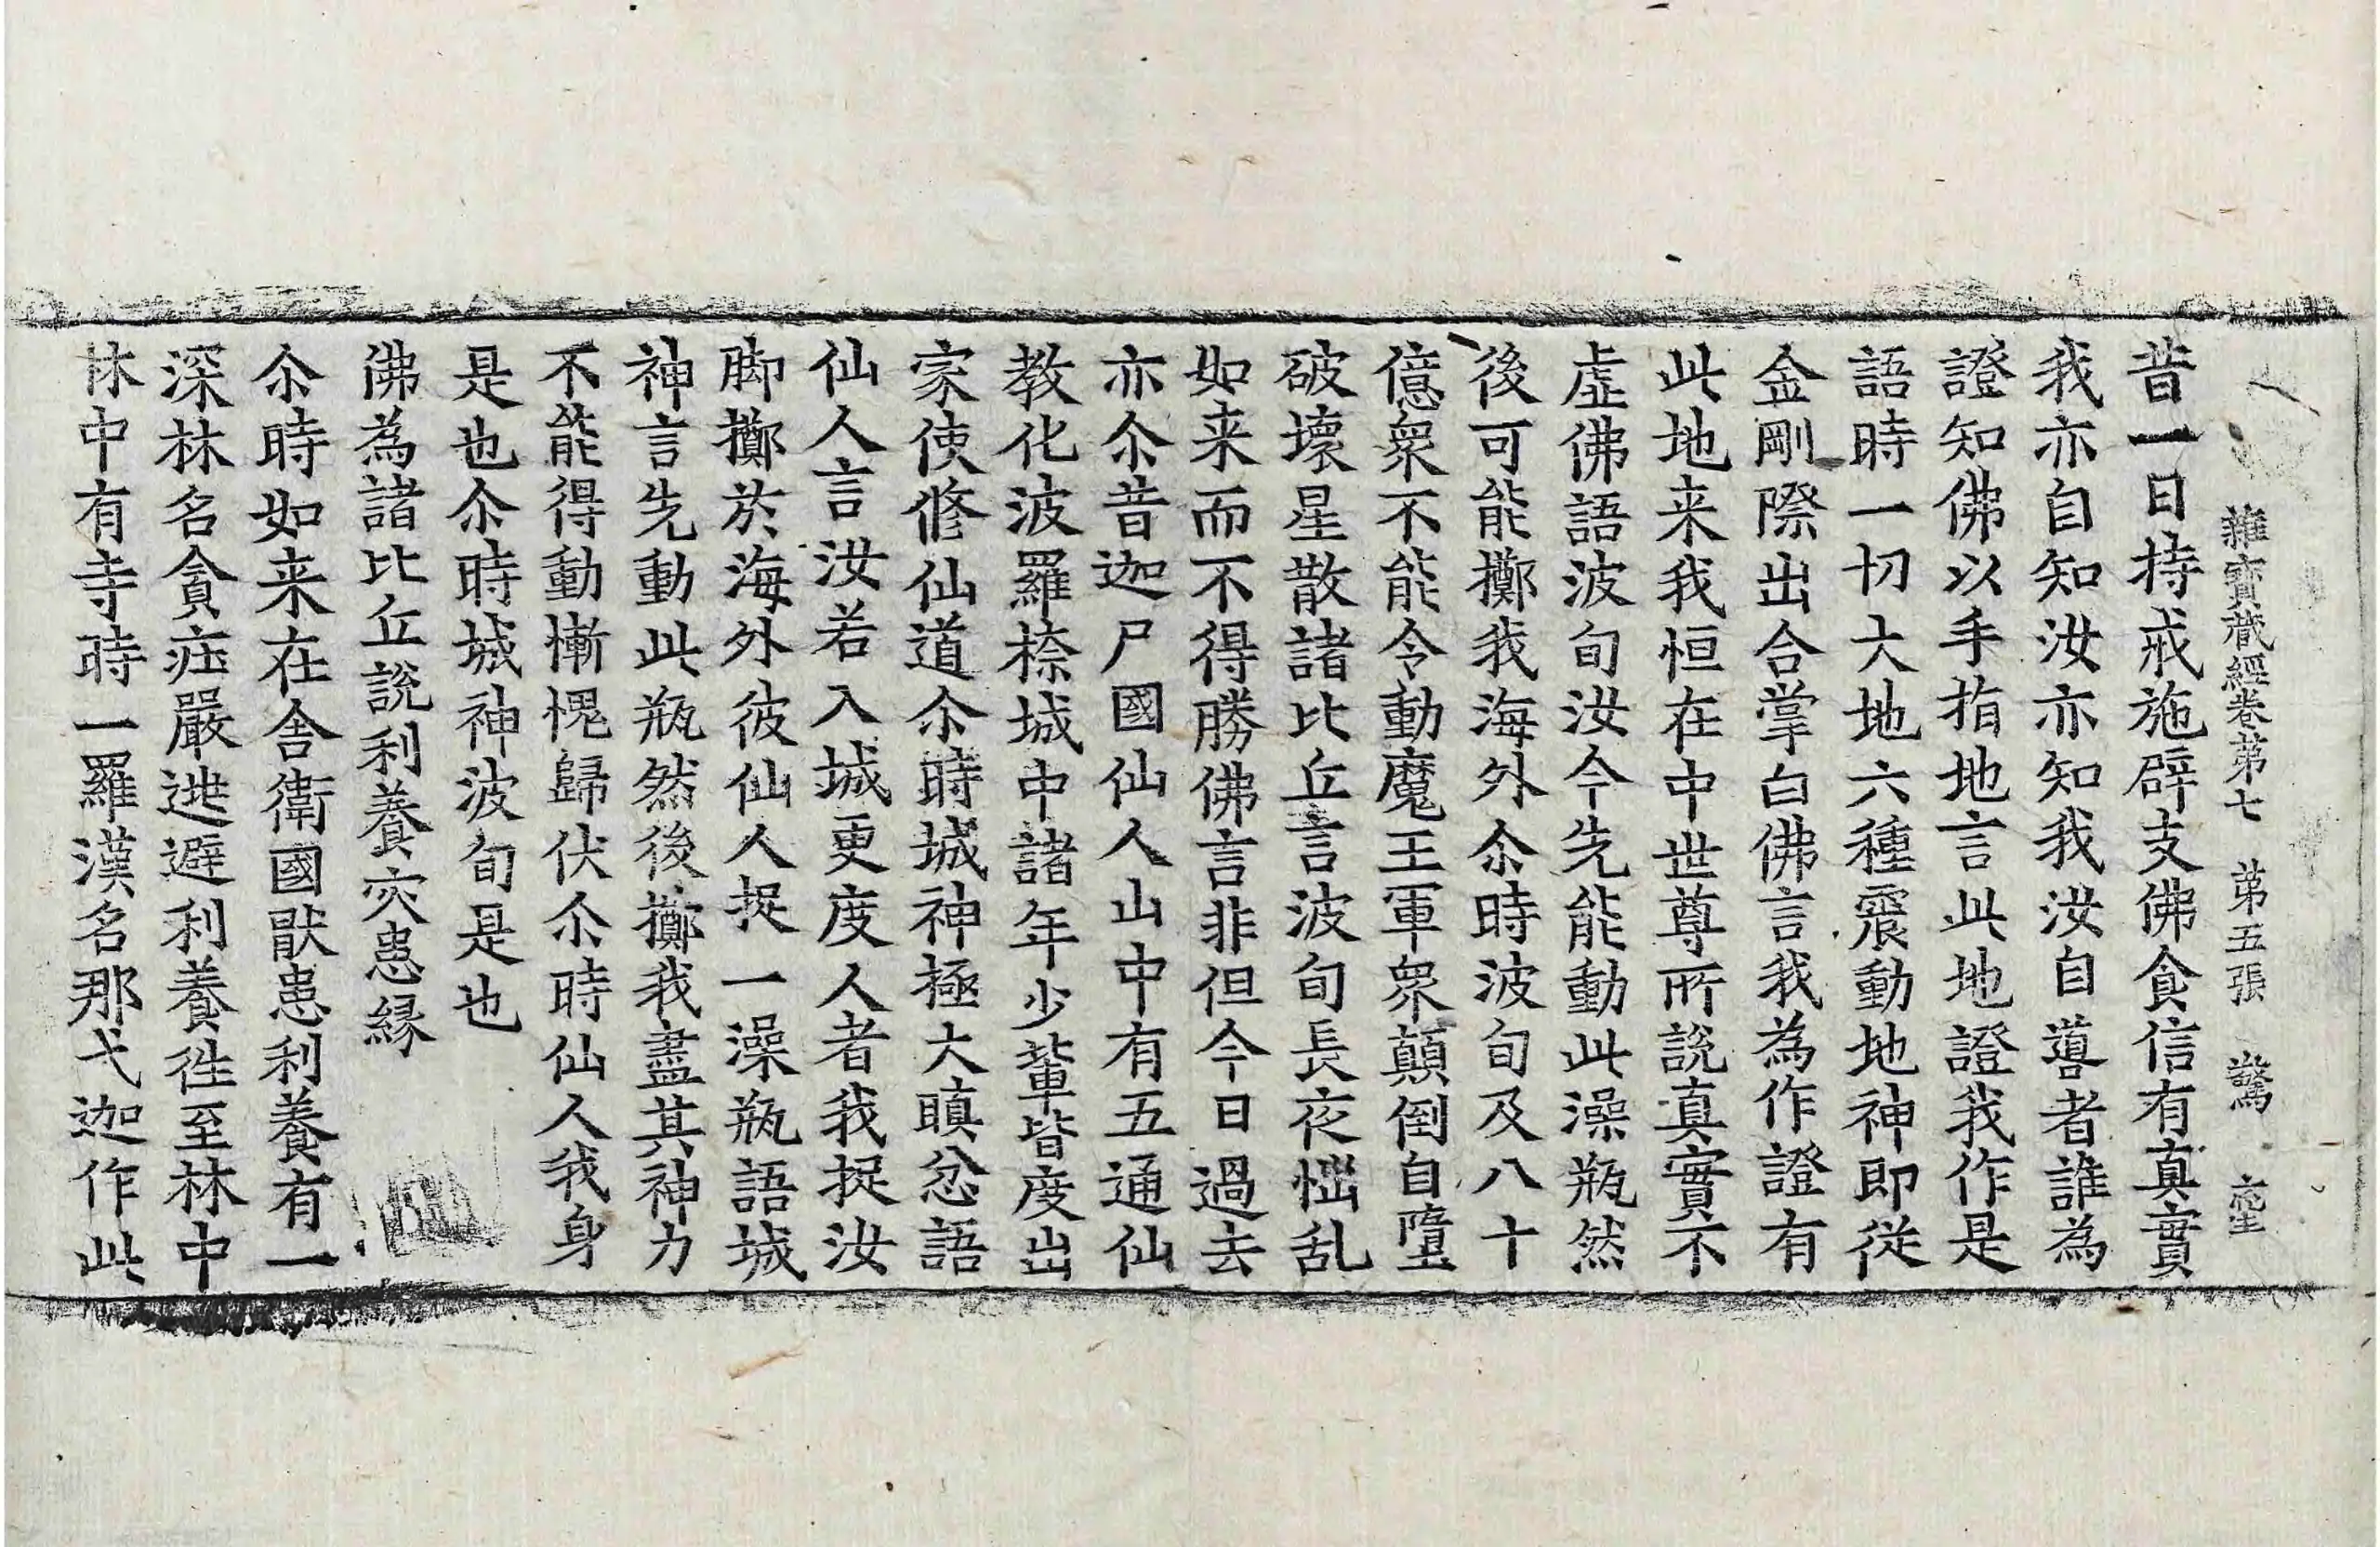 雜寶藏經卷第七　第五張　驚
昔一日持戒施辟支佛食信有真實
我亦自知汝亦知我汝自噵者誰為
證知佛以手指地言此地證我作是
語時一切大地六種震動地神即從
金剛際出合掌白佛言我為作證有
此地来我恒在中世尊所說真實不
虛佛語波旬汝今先能動此澡瓶然
後可能擲我海外尒時波旬及八十
億眾不能令動魔王軍眾顛倒自墮
破壞星散諸比丘言波旬長夜惱乱
如来而不得勝佛言非但今日過去
亦尒昔迦尸國仙人山中有五通仙
教化波羅㮈城中諸年少輩皆度出
家使修仙道尒時城神極大瞋忿語
仙人言汝若入城更度人者我捉汝
脚擲於海外彼仙人捉一澡瓶語城
神言先動此瓶然後擲我盡其神力
不能得動慚愧歸伏尒時仙人我身
是也尒時城神波旬是也
佛為諸比丘說利養灾患縁
尒時如来在舍衛國猒患利養有一
深林名貪莊嚴逃避利養徃至林中
林中有寺時一羅漢名那弋迦作此